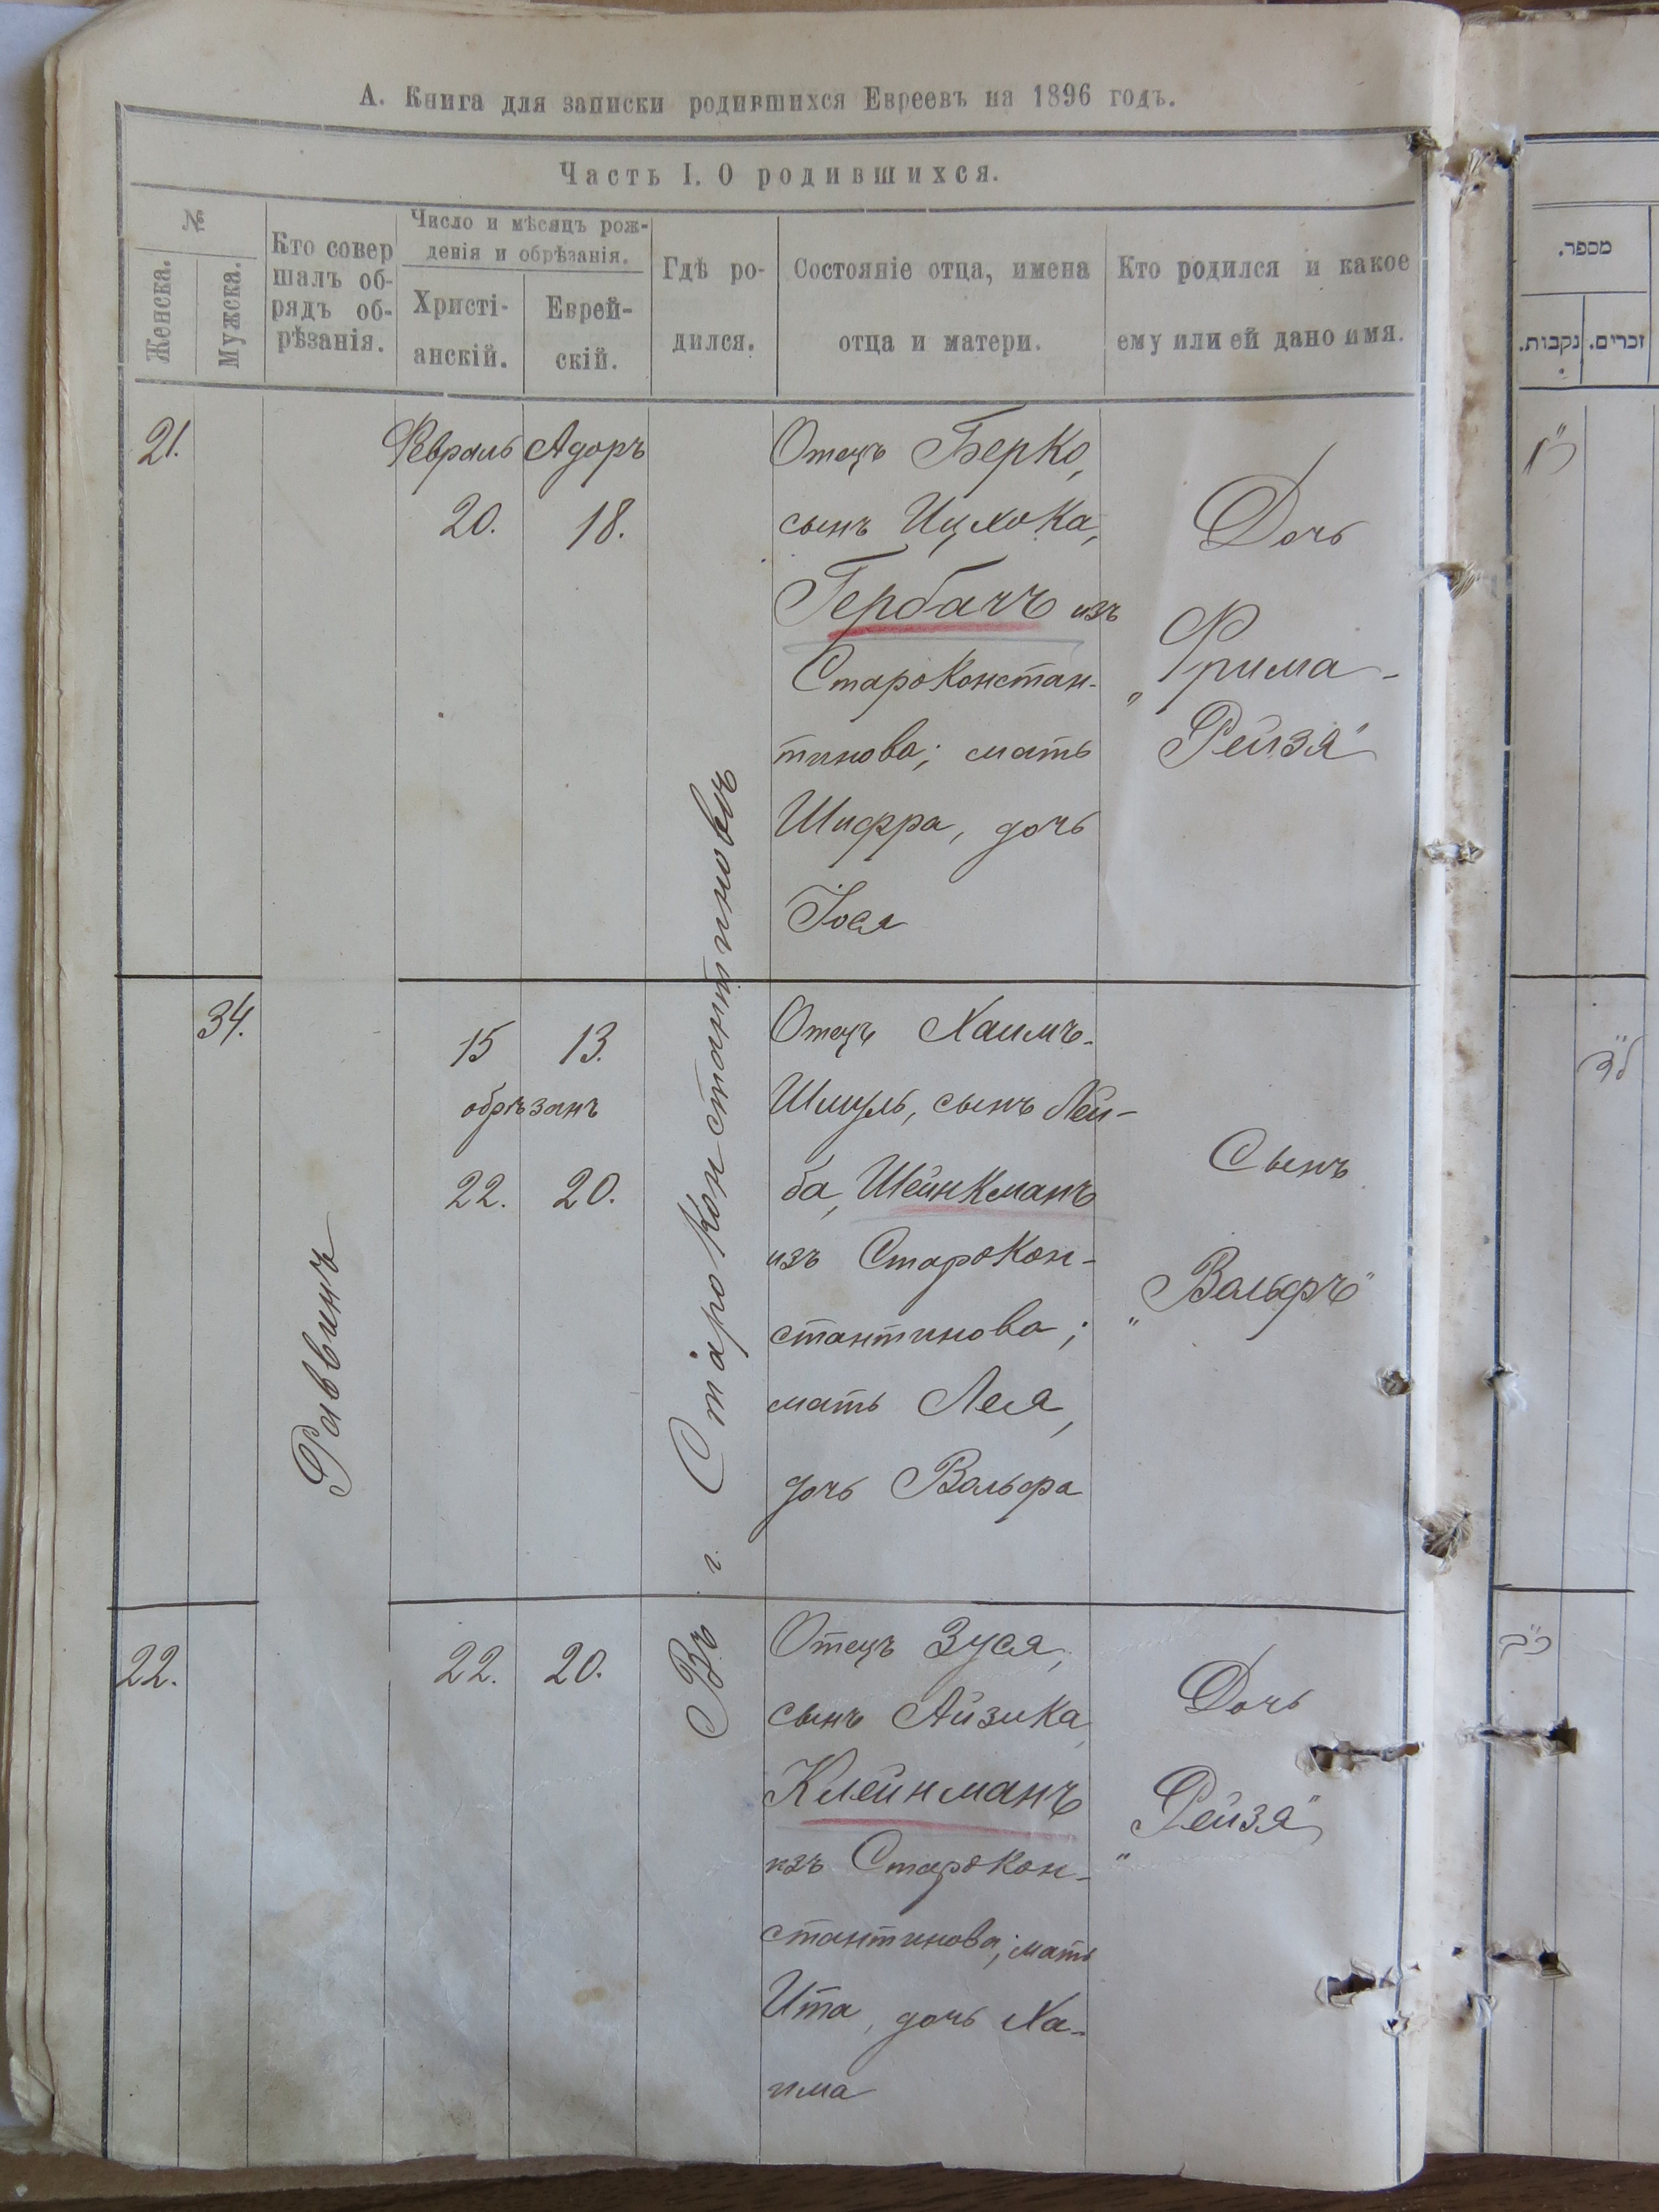 А. Книга для записки родившихся Евреевъ на 1896 годъ.
Часть I. О родившихся.
№
Женска.
Мужска.
Кто совер
шалъ об-
рядъ об-
рѣзанія.
Число и мѣсяцъ рож-
денія и обрѣзанія.
Христі-
анскій.
Еврей-
скій.
Гдѣ ро-
дился.
Состояніе отца, имена
отца и матери.
Кто родился и какое
ему или ей дано имя.
21.
Февраль Адоръ
20. 18.
Отецъ Берко,
сынъ Ицхока,
Гербачъ изъ
Староконстан-
тинова; мать
Шифра, дочь
Іося
Дочь
„Фрима-
Рейзя“
34.
15 13.
обрѣзанъ
22. 20.
Отецъ Хаимъ-
Шмуль, сынъ Лей-
ба, Шейнкманъ
изъ Старокон-
стантинова;
мать Лея,
дочь Вольфа
Сынъ
„Вольфъ“
Раввинъ
Въ г. Староконстантиновѣ
22.
22. 20.
Отецъ Зуся,
сынъ Айзика,
Клейнманъ
изъ Старокон-
стантинова; мать
Ита, дочь Ха-
има
Дочь
„Рейзя“
מספר.
נקבות.
זכרים.
כ"א
ל"ד
כ"ב